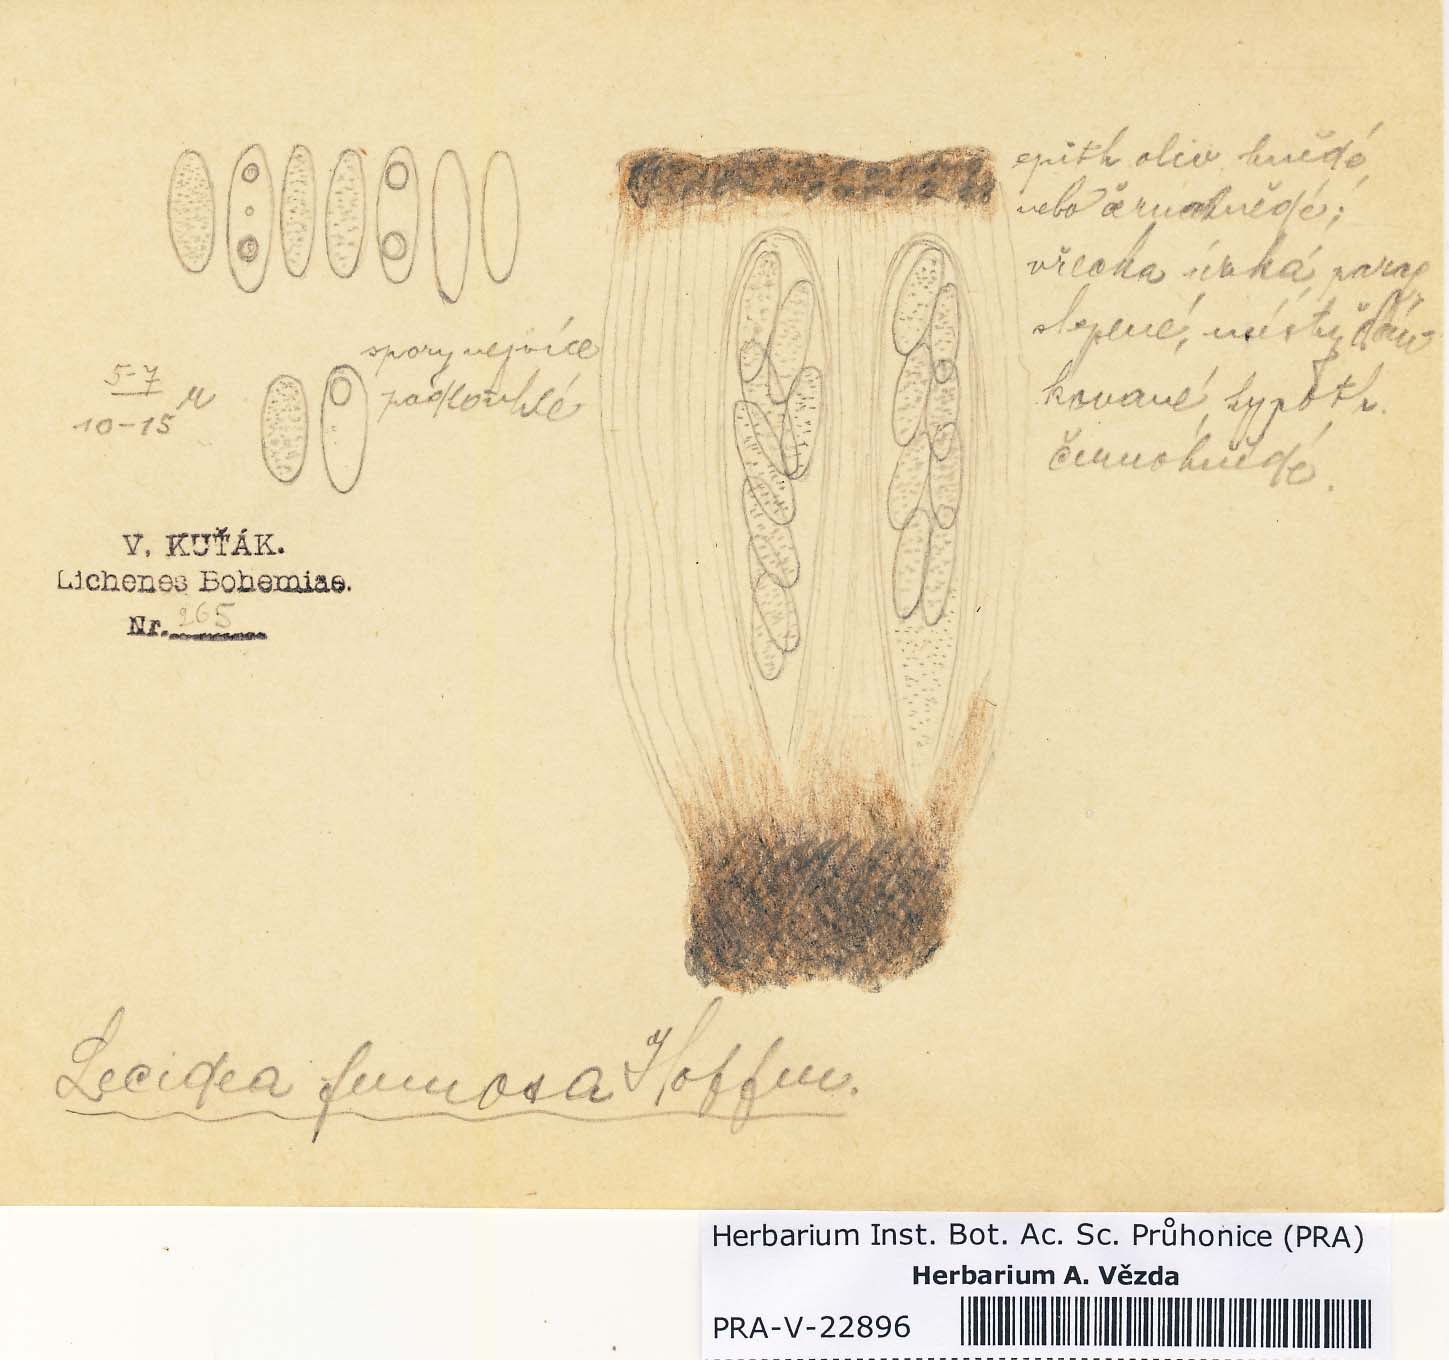 epith oliv. hnědé
nebo černohnědé;
vřecka úzká, paraf.
slepené, místy člán-
kované, hypoth.
černohnědé.
spory nejvíce
podlouhlé
5-7
10-15 µ
V. KUŤÁK.
Lichenes Bohemiae.
Nr. 265
Lecidea fumosa Hoffm.
Herbarium Inst. Bot. Ac. Sc. Průhonice (PRA)
Herbarium A. Vězda
PRA-V-22896